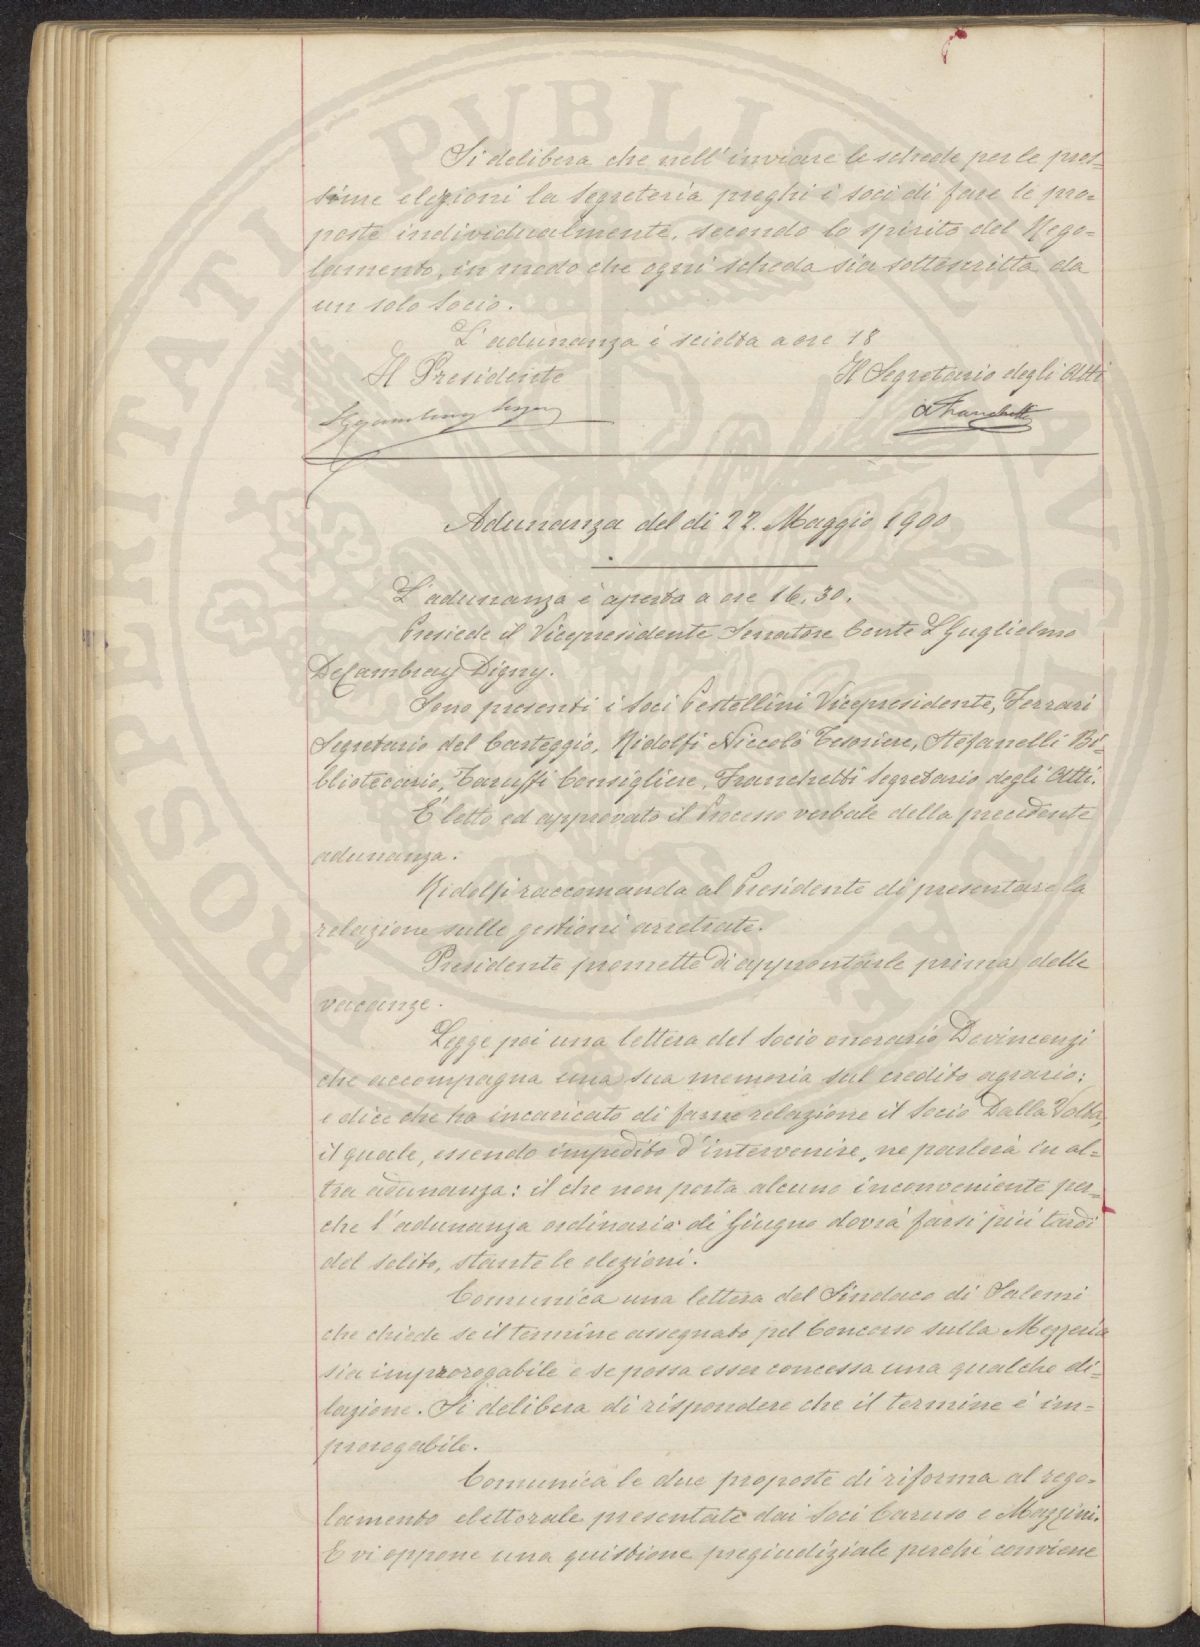 Si delibera che nell'inviare le schede per le pros-
sime elezioni la segreteria preghi i soci di fare le pro=
poste individualmente, secondo lo spirito del Rego=
lamento, in modo che ogni scheda sia sottoscritta da
un solo socio.
L'adunanza è sciolta a ore 18
Il Presidente
Il Segretario degli Atti
AFranchetti
Adunanza del dì 22. Maggio 1900
L'adunanza è aperta a ore 16.30.
Presiede il Vicepresidente Senatore Conte LGuglielmo
DeCambray Digny.
Sono presenti i Soci Pestellini Vicepresidente, Ferrari
Segretario del Carteggio, Ridolfi Niccolò Tesoriere, Stefanelli Bi=
bliotecario, Taruffi Consigliere, Franchetti Segretario degli Atti.
È letto ed approvato il Processo verbale della precedente
adunanza.
Ridolfi raccomanda al Presidente di presentare la
relazione sulle gestioni arretrate.
Presidente promette di approntarle prima delle
vacanze.
Legge poi una lettera del Socio onorario Devincenzi
che accompagna una sua memoria sul credito agrario;
e dice che ha incaricato di farne relazione il Socio Dalla Volta,
il quale, essendo impedito d'intervenire, ne parlerà in al=
tra adunanza: il che non porta alcuno inconveniente per=
chè l'adunanza ordinaria di Giugno dovrà farsi più tardi
del solito, stante le elezioni.
Comunica una lettera del Sindaco di Salemi
che chiede se il termine assegnato pel Concorso sulla Mezzeria
sia improrogabile e se possa esser concessa una qualche di=
lazione. Si delibera di rispondere che il termine è im=
prorogabile.
Comunica le due proposte di riforma al rego=
lamento elettorale presentate dai Soci Caruso e Mazzini.
E vi oppone una quistione pregiudiziale perchè conviene
PROSPERITATI PUBLICAE AUGENDAE